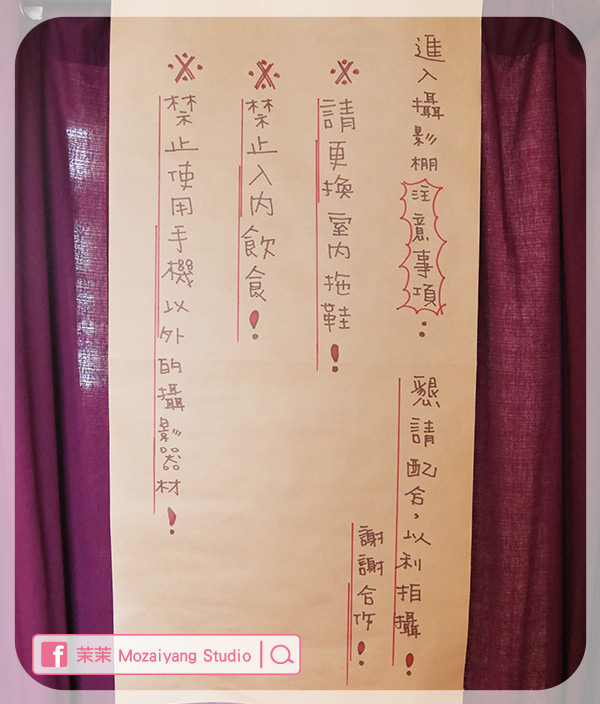 進入攝影棚注意事項：
※請更換室內拖鞋！
※禁止入內飲食！
※禁止使用手機以外的攝影器材！
懇請配合，以利拍攝！
謝謝合作！
茉茉 Mozaiyang Studio